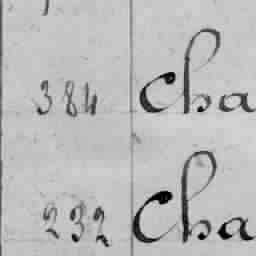 384 Cha
232 Cha